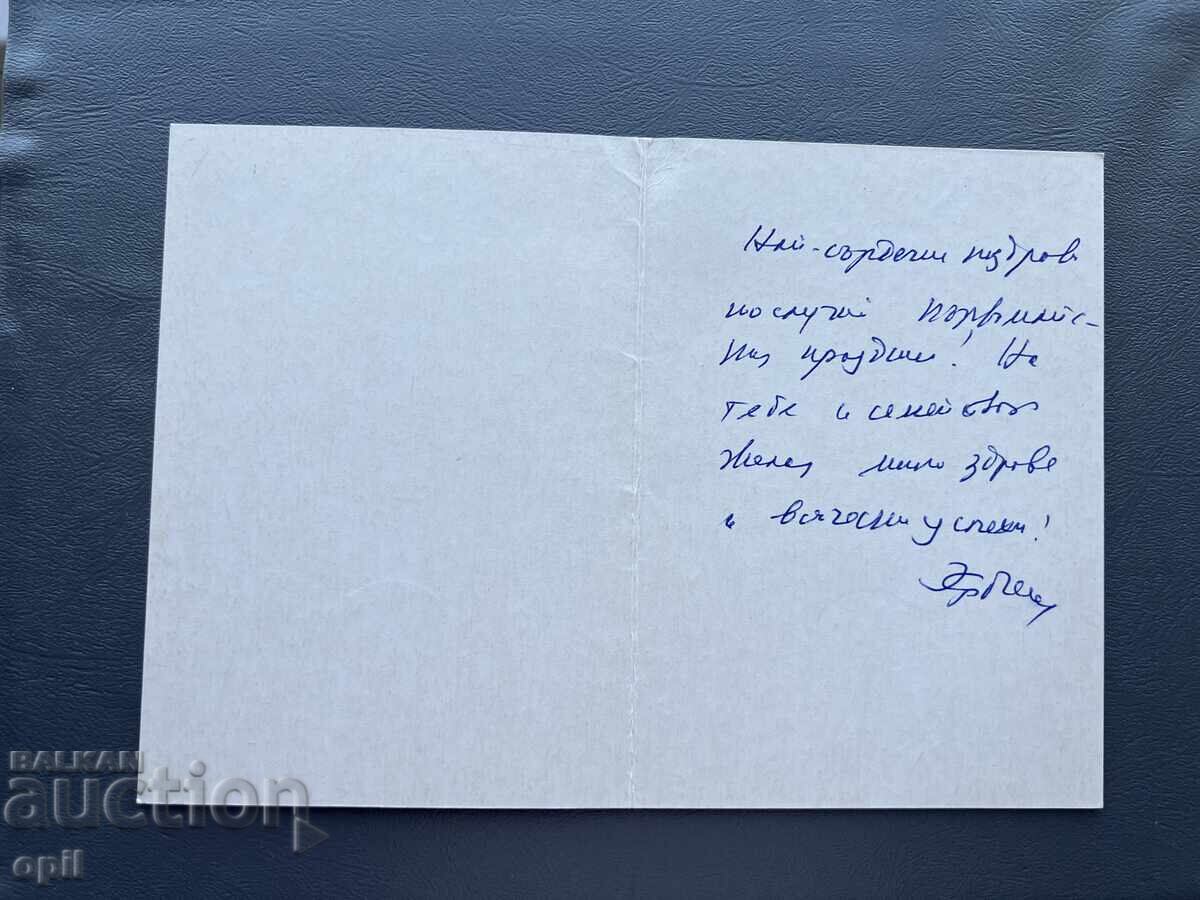 Най-сърдечни поздрави
по случай Първомайс-
кия празник! На
тебе и семейството
желая много здраве
и всячески успехи!
BALKAN
auction
opil